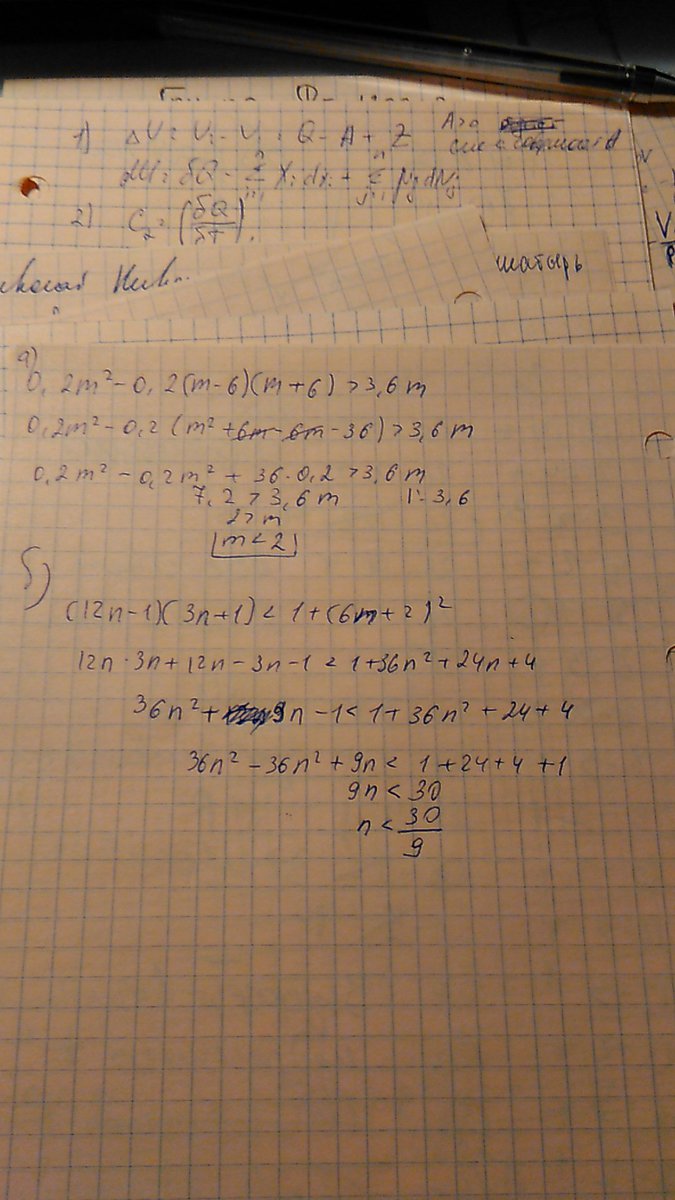 1) ΔU = U₂ - U₁ = Q - A + Z A>0
dU = δQ - Σ Xᵢ dxᵢ + Σ μⱼ dNⱼ
2) C = (δQ/δT)
шатырь
V
а)
0,2m² - 0,2(m-6)(m+6) > 3,6m
0,2m² - 0,2(m² +6m - 6m - 36) > 3,6m
0,2m² - 0,2m² + 36·0,2 > 3,6m
7,2 > 3,6m |: 3,6
2 > m
m < 2
б)
(12n-1)(3n+1) < 1+(6m+2)²
12n·3n + 12n - 3n - 1 < 1+36n²+24n+4
36n² + 9n - 1 < 1 + 36n² + 24 + 4
36n² - 36n² + 9n < 1 + 24 + 4 + 1
9n < 30
n < 30/9